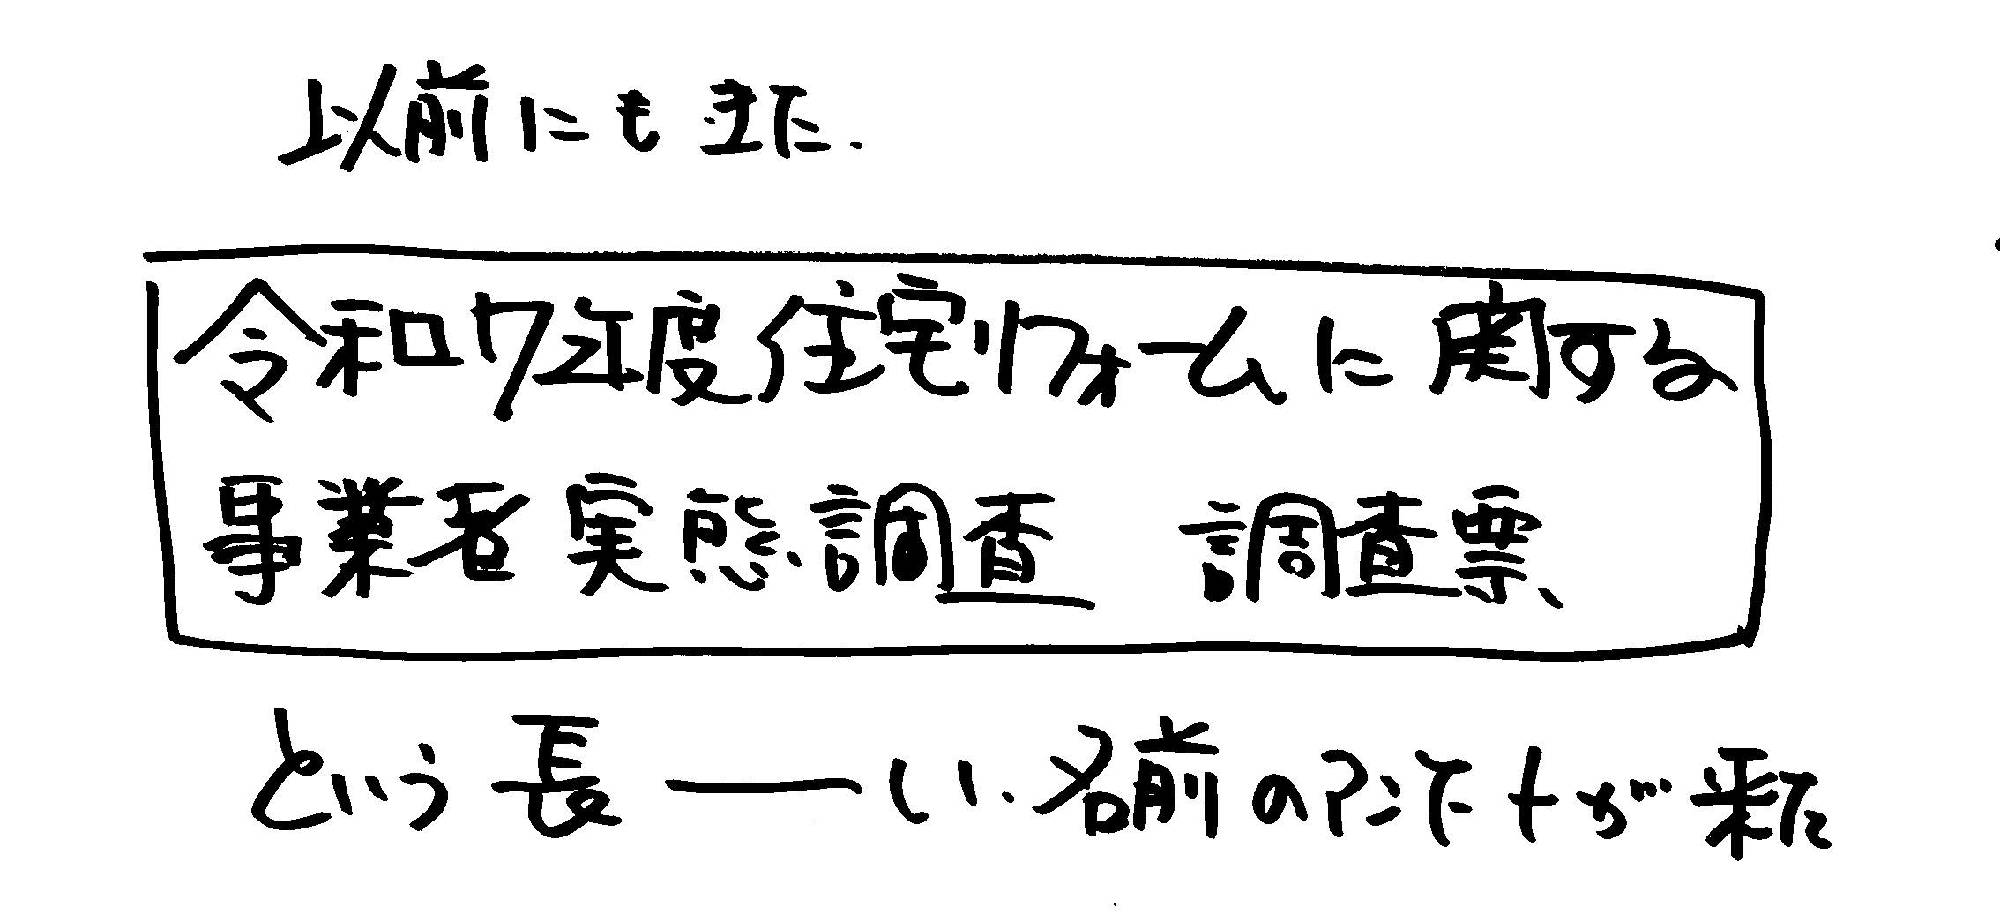 以前にもきた.
令和7年度住宅リフォームに関する
事業者実態調査 調査票
という長ーい名前のアンケートが来た